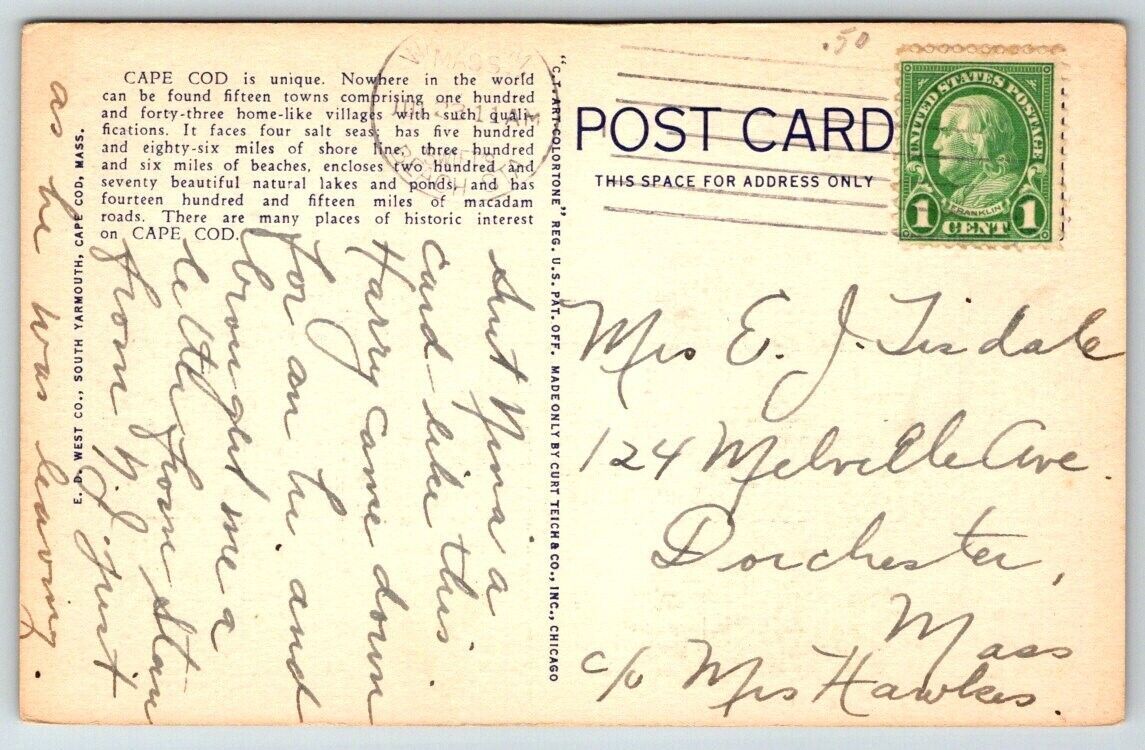 CAPE COD is unique. Nowhere in the world
can be found fifteen towns comprising one hundred
and forty-three home-like villages with such quali-
fications. It faces four salt seas; has five hundred
and eighty-six miles of shore line, three hundred
and six miles of beaches, encloses two hundred and
seventy beautiful natural lakes and ponds, and has
fourteen hundred and fifteen miles of macadam
roads. There are many places of historic interest
on CAPE COD.
E. D. WEST CO., SOUTH YARMOUTH, CAPE COD, MASS.
"C.T. ART-COLORTONE" REG. U.S. PAT. OFF. MADE ONLY BY CURT TEICH & CO., INC., CHICAGO
MASS
BEACH
AM
.50
POST CARD
THIS SPACE FOR ADDRESS ONLY
UNITED STATES POSTAGE
FRANKLIN
1 CENT 1
a
card like this
Harry came down
for an hr. and
brought me a
letter from Stan
from N.J. just
as he was leaving.
Mrs E. J. Tisdale
124 Melville Ave
Dorchester,
Mass
c/o Mrs Hawkes.